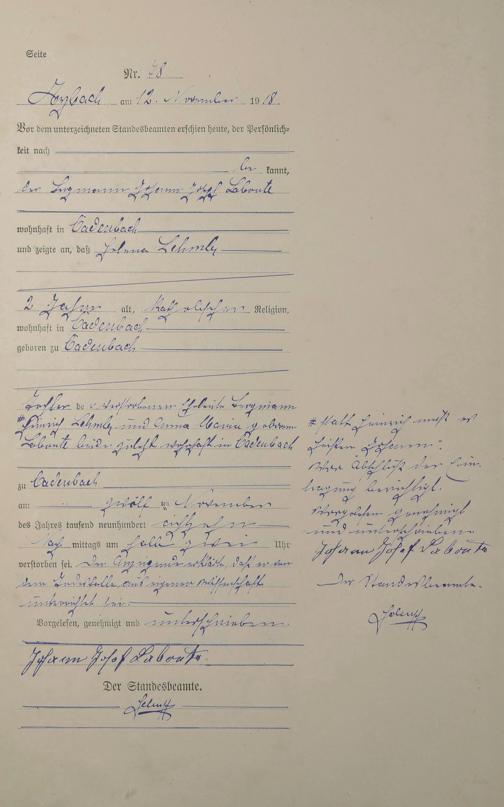 Seite
Nr. 78
am 12. November 1918
Vor dem unterzeichneten Standesbeamten erschien heute, der Persönlich-
keit nach
be kannt,
der Bergmann Johann Josef Labonte
wohnhaft in Cadenbach
und zeigte an, daß Helena Lehmly
2 Jahre alt, katholischer Religion,
wohnhaft in Cadenbach
geboren zu Cadenbach
Tochter der verstorbenen Eheleute Bergmann
Heinrich Lehmly und Anna Maria geborene
Labonte beide zuletzt wohnhaft in Cadenbach
zu Cadenbach
am zwölften November
des Jahres tausend neunhundert achtzehn
Nach mittags um halb zwei Uhr
verstorben sei. Der Anzeigende erklärte, daß er von
dem Todesfalle aus eigener Wissenschaft
unterrichtet sei.
Vorgelesen, genehmigt und unterschrieben
Johann Josef Labonte
Der Standesbeamte.
statt Heinrich muß es
heißen Johann.
Vor Abschluß der Ein-
tragung berichtigt.
Vorgelesen genehmigt
und unterschrieben
Johann Josef Labonte
Der Standesbeamte.